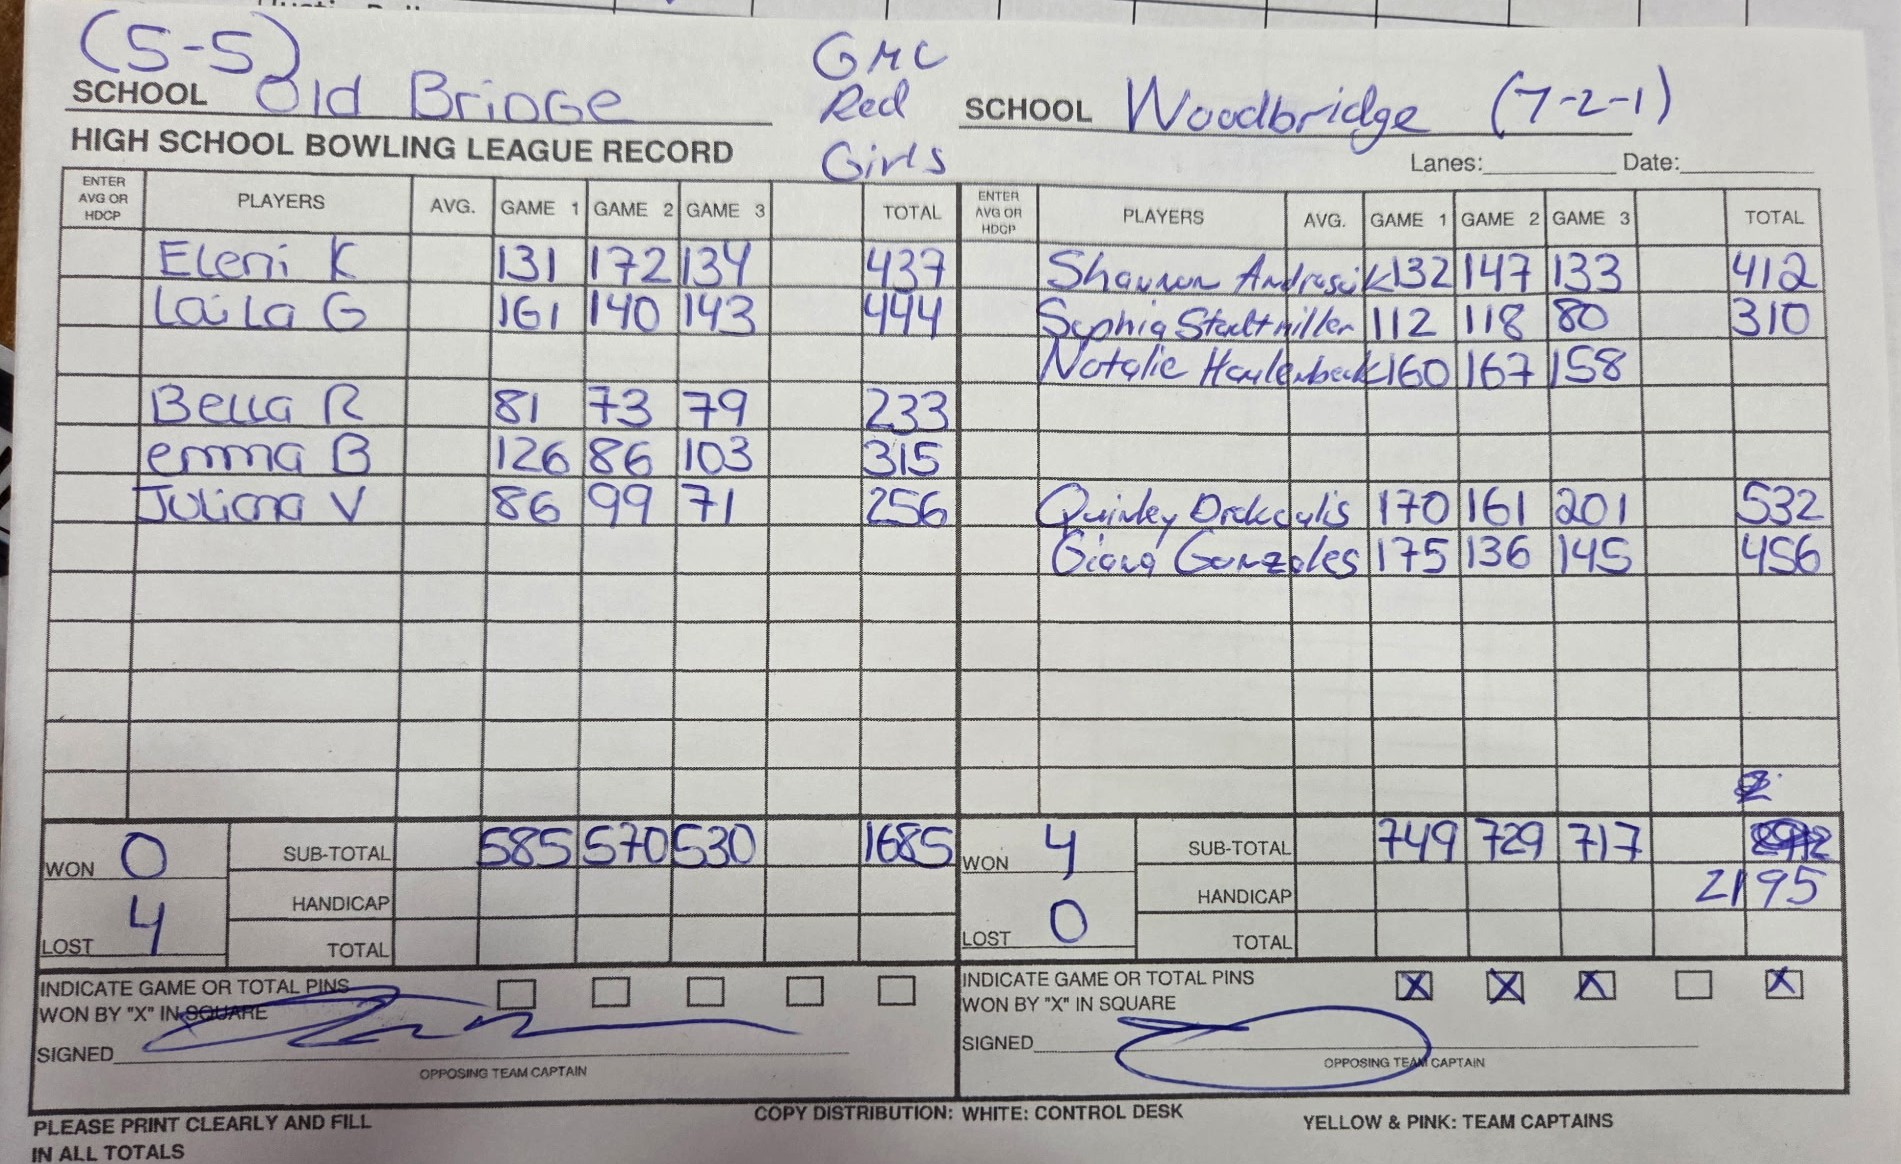 (5-5)
SCHOOL Old Bridge
GMC
Red
Girls
SCHOOL Woodbridge (7-2-1)
HIGH SCHOOL BOWLING LEAGUE RECORD
Lanes: Date:
ENTER AVG OR HDCP PLAYERS AVG. GAME 1 GAME 2 GAME 3 TOTAL ENTER AVG OR HDCP PLAYERS AVG. GAME 1 GAME 2 GAME 3 TOTAL
Eleni K 131 172 134 437 Shannon 132 147 133 412
Laila G 161 140 143 444 Sophia 112 118 80 310
Natalie 160 167 158
Bella R 81 73 79 233
emma B 126 86 103 315
Juliana V 86 99 71 256 Quinley 170 161 201 532
Giana Gonzales 175 136 145 456
WON 0 SUB-TOTAL 585 570 530 1685 WON 4 SUB-TOTAL 749 729 717
HANDICAP HANDICAP 2195
LOST 4 TOTAL LOST 0 TOTAL
INDICATE GAME OR TOTAL PINS INDICATE GAME OR TOTAL PINS X X X X
WON BY "X" IN SQUARE WON BY "X" IN SQUARE
SIGNED SIGNED
OPPOSING TEAM CAPTAIN OPPOSING TEAM CAPTAIN
PLEASE PRINT CLEARLY AND FILL COPY DISTRIBUTION: WHITE: CONTROL DESK YELLOW & PINK: TEAM CAPTAINS
IN ALL TOTALS